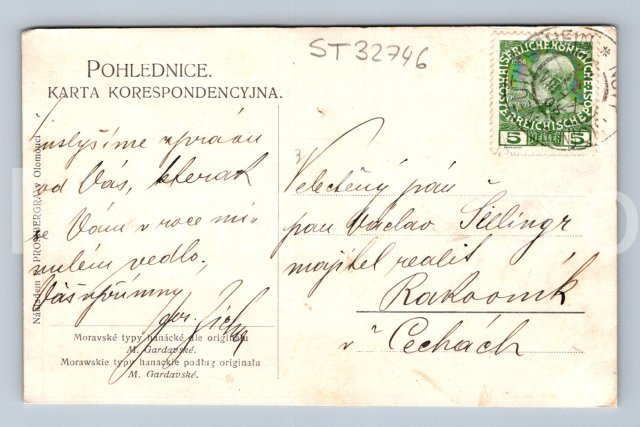 ST 32746
POHLEDNICE.
KARTA KORESPONDENCYJNA.
KAISERLICHE KÖNIGLICHE
ÖSTERREICHISCHE
5 HELLER 5
uslyšíme zprávu
od Vás, kterak
se Vám v roce mi-
nulém vedlo.
Váš upřímný
Velectěný pán
pan Václav
majitel realit
Rakovník
v Čechách
Moravské typy hanácké dle originálu
M. Gardavské.
Morawskie typy hanackie podług originału
M. Gardavské.
Nákladem R. PROMBERGRA v Olomouci